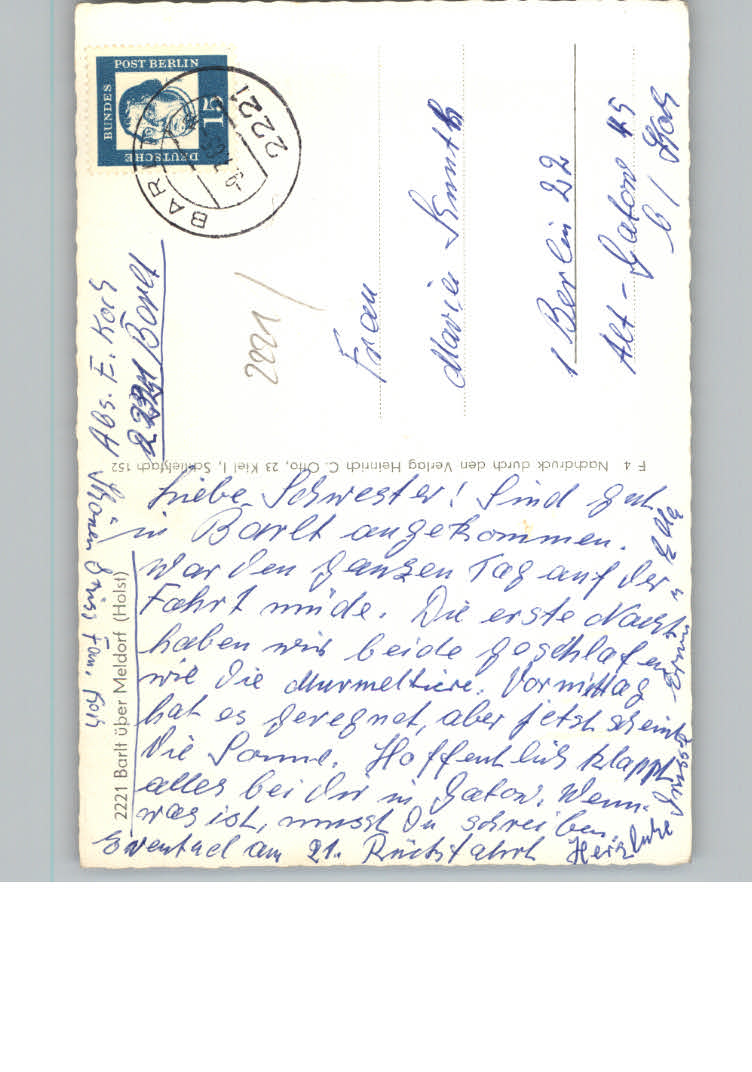 DEUTSCHE
BUNDES
POST BERLIN
15
BARLT
2221
2221/
Abs. E. Koch
2221 Barlt
Frau
Maria
1 Berlin 22
Alt-Gatow 45
b/ Koch
F 4 Nachdruck durch den Verlag Heinrich C. Otto, 23 Kiel 1, Schließfach 152
2221 Barlt über Meldorf (Holst)
Liebe Schwester! Sind gut
in Barlt angekommen.
War den ganzen Tag auf der
Fahrt müde. Die erste Nacht
haben wir beide geschlafen
wie die Murmeltiere. Vormittag
hat es geregnet, aber jetzt scheint
die Sonne. Hoffentlich klappt
alles bei Dir in Gatow. Wenn
was ist, musst Du schreiben.
Eventuel am 21. Rückfahrt Herzliche
Grüsse Erna u. Ella
Schönen Gruss Fam. Koch